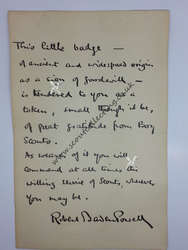 This little badge —
of ancient and widespread origin
as a sign of goodwill —
is tendered to you as a
token, small though it be,
of great gratitude from Boy
Scouts.
As wearer of it you will
command at all times the
willing service of Scouts, wherever
you may be.
Robert Baden Powell